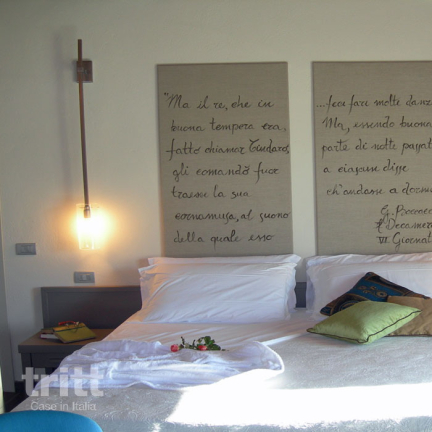 "Ma il re, che in
buona tempera era,
fatto chiamar Tindaro,
gli comandò fuor
traesse la sua
cornamusa, al suono
della quale esso
...fece fare molte danz
Ma, essendo buona
parte di notte passat
a ciascun disse
ch'andasse a dormi
G. Boccacc
Decamero
VI Giornat
tritt
Case in Italia